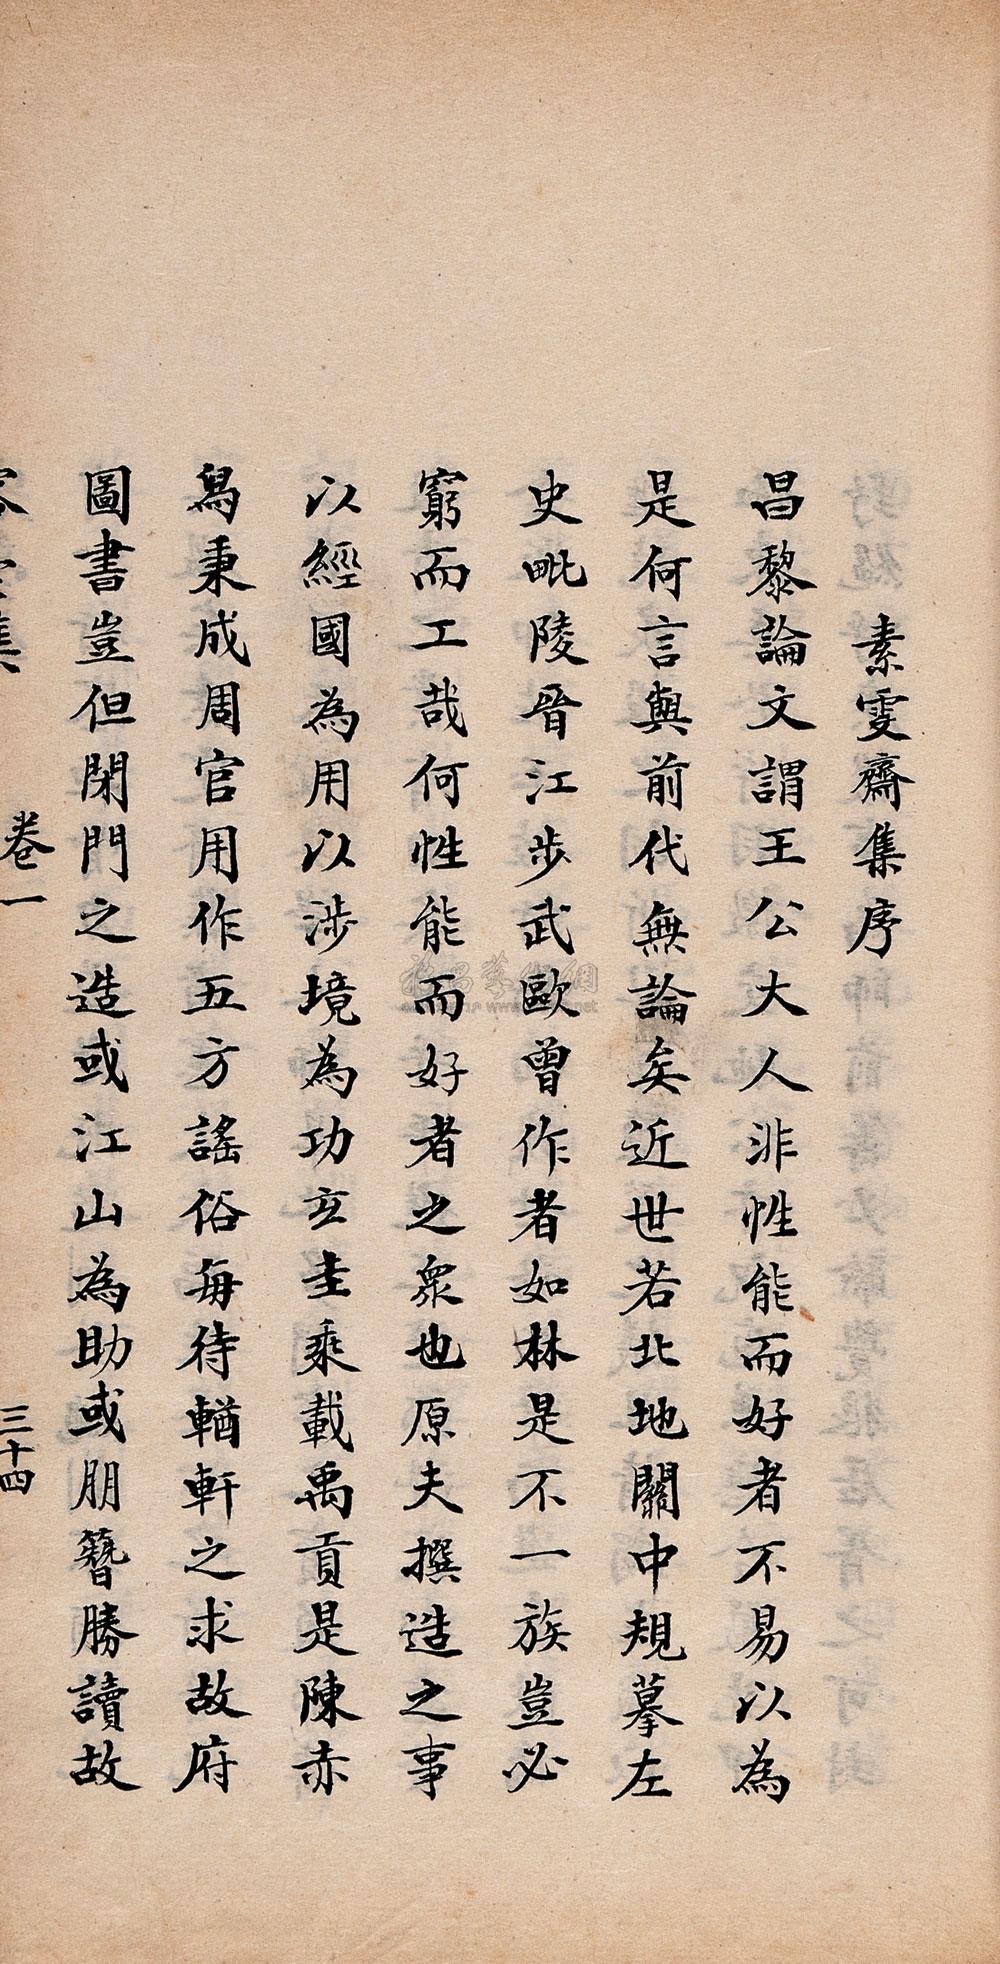 素雯齋集序
昌黎論文謂王公大人非性能而好者不易以為
是何言與前代無論矣近世若北地關中規摹左
史毗陵晉江步武歐曾作者如林是不一族豈必
窮而工哉何性能而好者之衆也原夫撰造之事
以經國為用以涉境為功玄圭乘載禹貢是陳赤
舄秉成周官用作五方謠俗每待輶軒之求故府
圖書豈但閉門之造或江山為助或朋簪勝讀故
容臺集 卷一 三十四